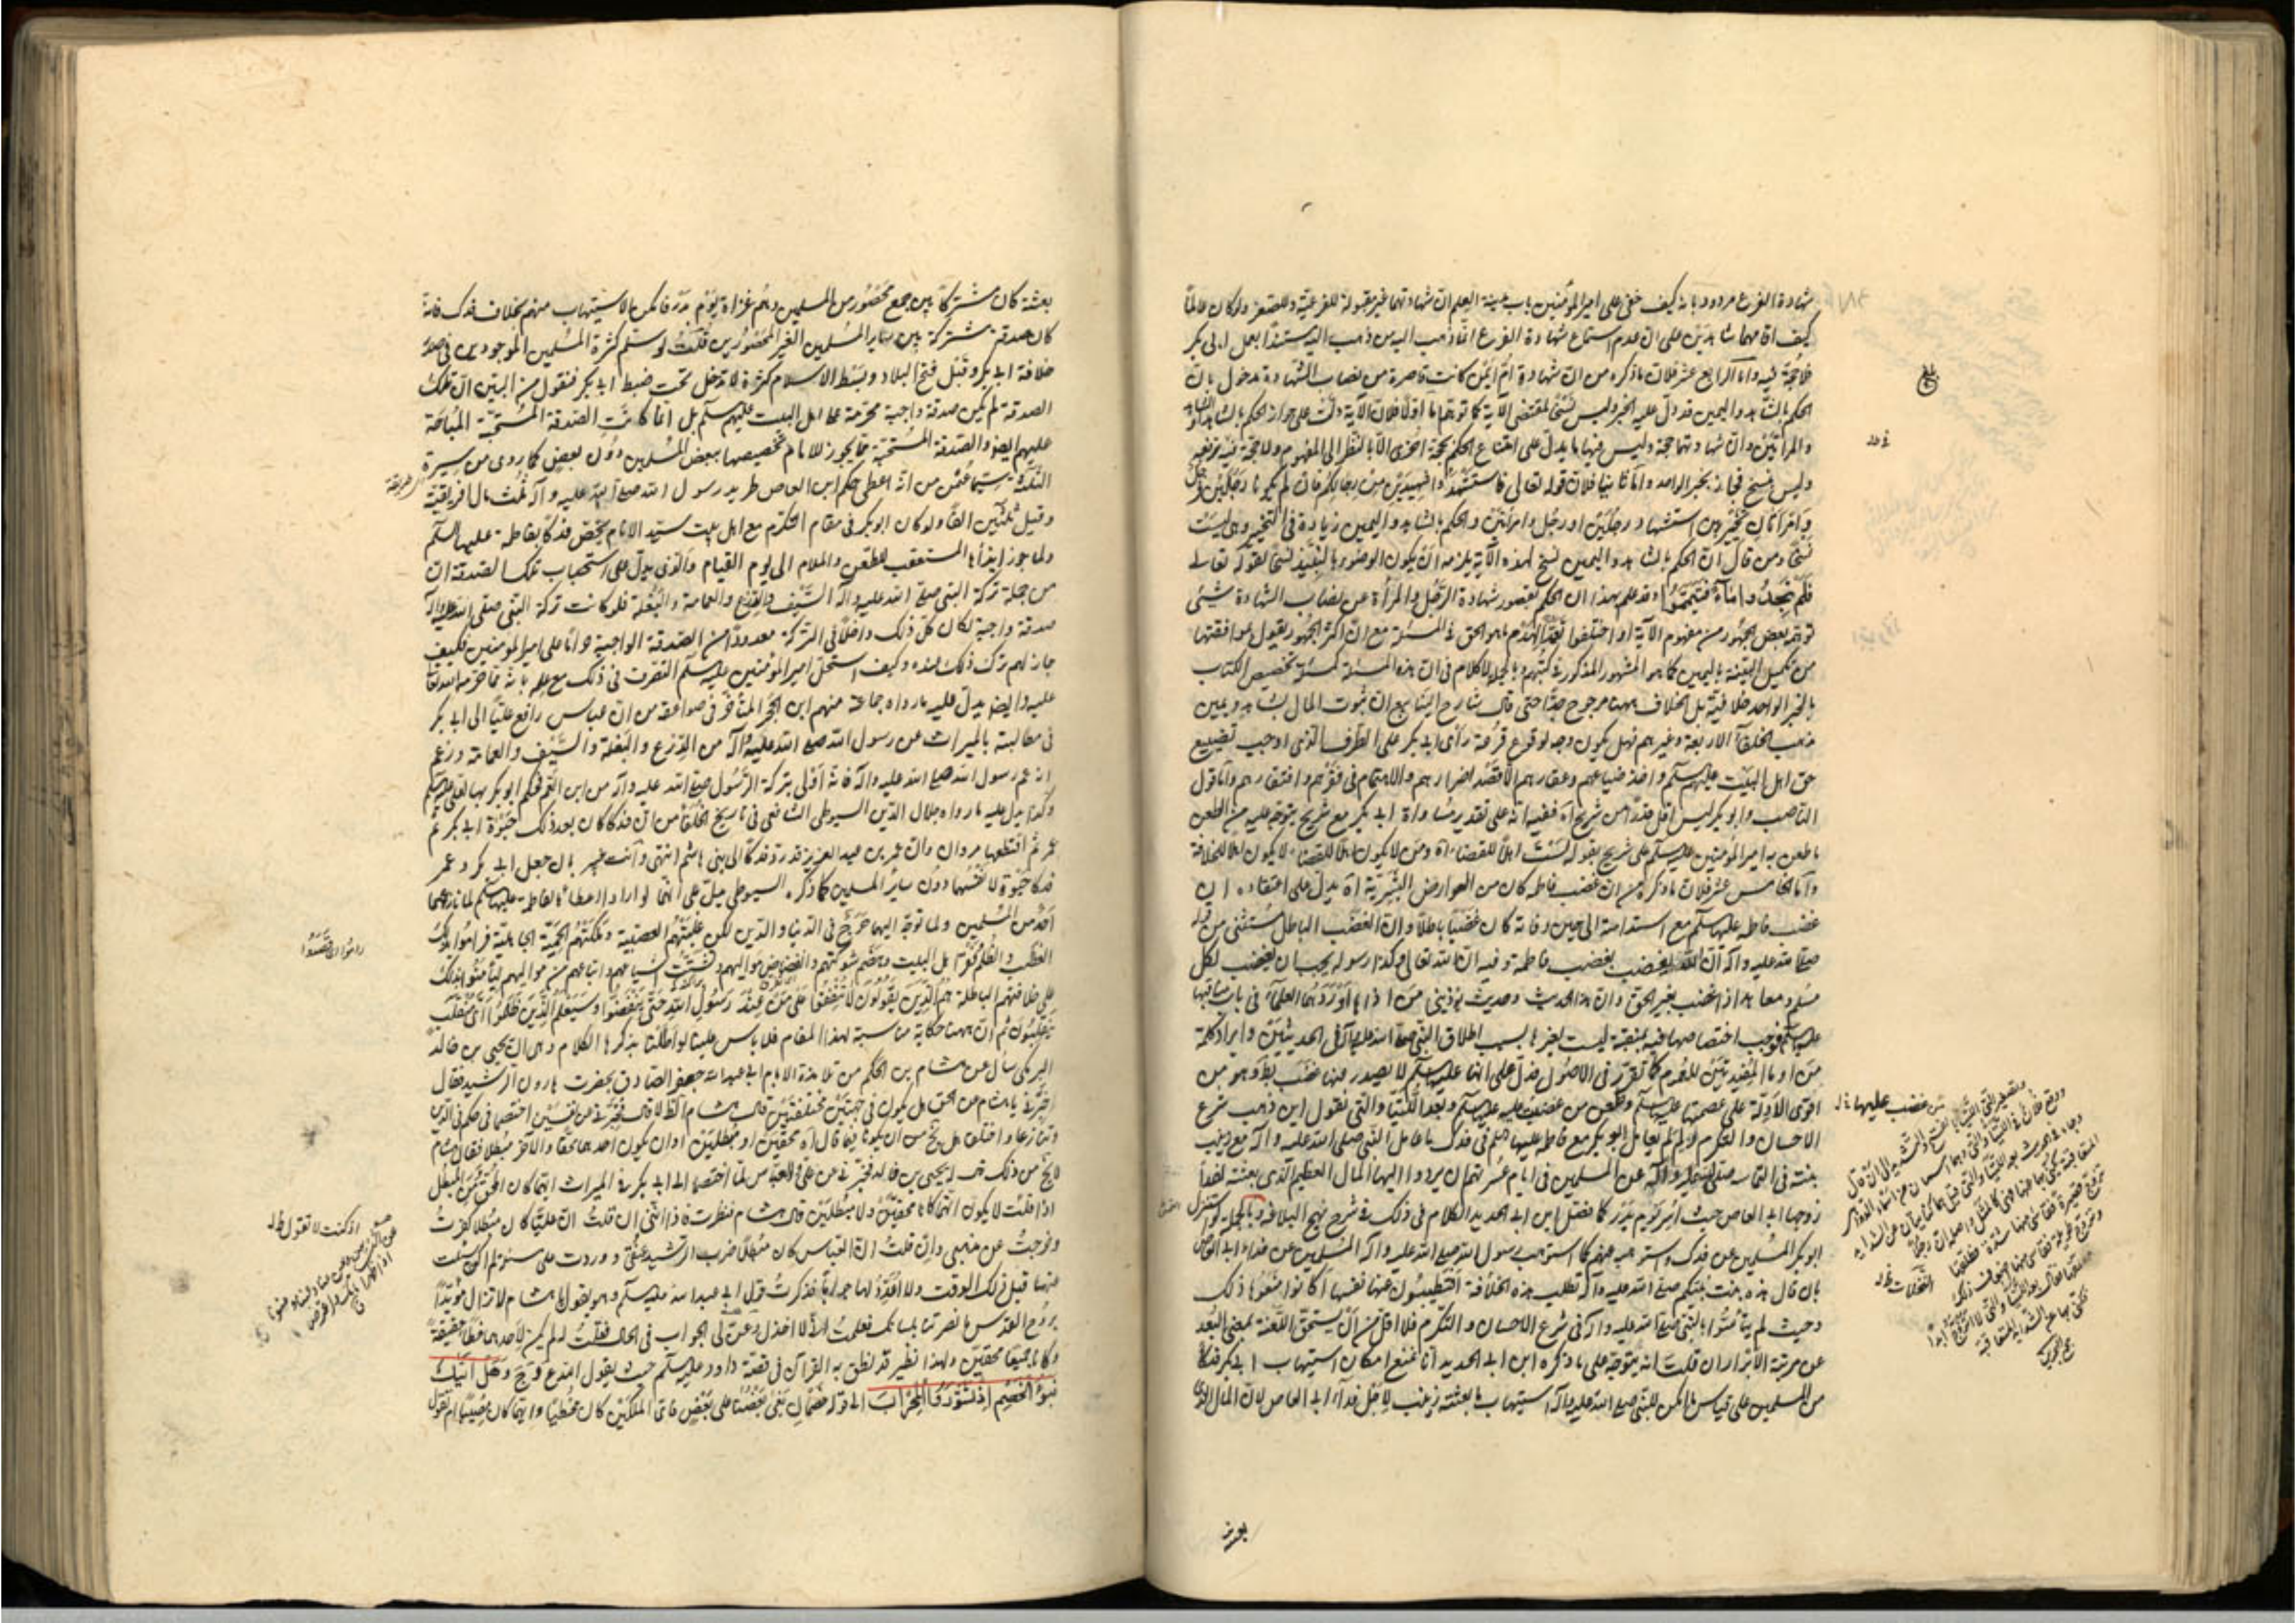 شهادة الفرع مردود بانه كيف خفى على امير المؤمنين باب مدينة العلم ان شهادتهما غير مقبولة للفرعية وللصغر ولو كان عالما
كيف اقامهما شاهدين على ان عدم استماع شهادة الفرع انما ذهب اليه من ذهب استنادا بعمل ابى بكر
فلا حجة فيه واما الرابع عشر فلان ما ذكره من ان شهادة ام ايمن كانت قاصرة من نصاب الشهادة مدخول بان
الحكم بالشاهد واليمين قد دل عليه الخبر وليس نسخ لمقتضى الآية كما توهم اما اولا فلان الآية دلت على جواز الحكم بالشاهدين او الشاهد
والمراتين وان شهادتهما حجة وليس فيها ما يدل على امتناع الحكم بحجة اخرى الا بالنظر الى المفهوم ولا حجة فيه فرفعه
وليس بنسخ فجاز بخبر الواحد واما ثانيا فلان قوله تعالى فاستشهدوا شهيدين من رجالكم فان لم يكونا رجلين فرجل
وامراتان تخيير بين استشهاد رجلين او رجل وامراتين والحكم بالشاهد واليمين زيادة في التخيير وهى ليست
نسخا ومن قال ان الحكم بالشاهد واليمين نسخ لهذه الآية يلزمه ان يكون الوضوء بالنبيذ نسخا لقوله تعالى
فلم تجدوا ماء فتيمموا وقد علم بهذا ان الحكم بقصور شهادة الرجل والمرأة عن نصاب الشهادة شيئ
توهمه بعض الجمهور من مفهوم الآية او اختلفوا تعمدا لهدم ما هو الحق في المسئلة مع ان اكثر الجمهور يقول بموافقتها
من تكميل البينة باليمين كما هو المشهور المذكور في كتبهم وبالجملة لا كلام في ان هذه المسئلة كمسئلة تخصيص الكتاب
بالخبر الواحد خلافية بل الخلاف ههنا مرجوح جدا حتى قال شارح الينابيع ان ثبوت المال بشاهد ويمين
مذهب الخلفاء الاربعة وغيرهم فهل يكون وجه لوقوع قرعة رأى ابى بكر على الطرف الذى اوجب تضييع
حق اهل البيت عليهم السلام واخذ ضياعهم وعقارهم الا قصد اضرارهم والاهتمام في فقرهم وافتقارهم واما قول
الناصب وابو بكر ليس اقل قدرا من شريح آه ففيه انه على تقدير مساواة ابى بكر مع شريح يتوجه عليه من الطعن
ما طعن به امير المؤمنين عليه السلام على شريح بقوله لست اهلا للقضاء آه ومن لا يكون اهلا للقضاء لا يكون اهلا للخلافة
واما الخامس عشر فلان ما ذكره من ان غضب فاطمة كان من العوارض البشرية آه يدل على اعتقاده ان
غضب فاطمة عليها السلام مع استدامته الى حين وفاته كان غضبا باطلا وان الغضب الباطل مستثنى من قوله
صلى الله عليه وآله ان الله يغضب بغضب فاطمة وفيه ان الله تعالى وكذا رسوله يجب ان يغضب لكل
مسلم ومعاهد اذا غضب بغير الحق وان هذا الحديث وحديث يؤذينى من اذاها اوردهما العلماء في باب مناقبها
عليها السلام فوجب اختصاصها فيه بمنقبة ليست لغيرها بسبب اطلاق النبى صلى الله عليه وآله في الحديثين وايراد كلمة
من او ما المفيدتين للعموم كما تقرر في الاصول فدل على انها عليها السلام لا يصدر منها غضب باطل وهو من
اقوى الادلة على عصمتها عليها السلام وطعن من غضبت عليه السلام وبعد اللتيا والتى نقول اين ذهب شرع
الاحسان والتكرم ولم لم يتعامل ابو بكر مع فاطمة عليها السلام في فدك ما عامل النبى صلى الله عليه وآله مع زينب
بنته في التماسه صلى الله عليه وآله عن المسلمين في ايام عسرتهم ان يردوا اليها المال العظيم الذى بعثته لفداء
زوجها ابى العاص حيث اسر يوم بدر كما فصل ابن ابى الحديد الكلام في ذلك في شرح نهج البلاغة وبالجملة لو استنزل
ابو بكر المسلمين عن فدك واستوهبه منهم كما استوهب رسول الله صلى الله عليه وآله المسلمين عن فداء ابى العاص
بان قال هذه بنت نبيكم صلى الله عليه وآله تطلب هذه النخلات افتطيبون عنها نفسها اكانوا منعوها ذلك
وحيث لم يتأسوا بالنبى صلى الله عليه وآله في شرع الاحسان والتكرم فلا اقل من ان يستحق اللعنة بمعنى البعد
عن مرتبة الابرار ان قلت انه يتوجه على ما ذكره ابن ابى الحديد انا نمنع امكان استيهاب ابى بكر فدكا
من المسلمين على قياس ما امكن للنبى صلى الله عليه وآله استيهاب ما بعثته زينب لاجل فداء ابى العاص لان المال الذى
من غضب عليها خ ل
النخلات خ ل
بعثته
بعثته كان مشتركا بين جمع محصور من المسلمين وهم غزاة يوم بدر فامكن الاستيهاب منهم بخلاف فدك فانه
كان صدقة مشتركة بين سائر المسلمين الغير المحصورين قلت لو سلم كثرة المسلمين الموجودين في مدة
خلافة ابى بكر وقبل فتح البلاد وبسط الاسلام كثرة لا تدخل تحت ضبط ابى بكر فنقول من البين ان تلك
الصدقة لم يكن صدقة واجبة محرمة على اهل البيت عليهم السلام بل انما كانت الصدقة المستحبة المباحة
عليهم ايضا والصدقة المستحبة مما يجوز للامام تخصيصها ببعض المسلمين دون بعض كما روى من سيرة
الثلثة سيما عثمن من انه اعطى حكم ابن العاص طريد رسول الله صلى الله عليه وآله ثلث مال افريقية
وقيل ثلثين الفا ولو كان ابو بكر في مقام التكرم مع اهل بيت سيد الانام لخص فدكا بفاطمة عليها السلام
ولما جوز ايذاءها المستعقب للطعن والملام الى يوم القيام والذى يدل على استحباب تلك الصدقة ان
من جملة تركة النبى صلى الله عليه وآله السيف والدرع والعمامة والبغلة فلو كانت تركة النبى صلى الله عليه وآله
صدقة واجبة لكان كل ذلك داخلا في التركة معدودا من الصدقة الواجبة حراما على امير المؤمنين فكيف
جاز لهم ترك ذلك عنده وكيف استحل امير المؤمنين عليه السلام التصرف في ذلك مع علمه بانه مما حرمه الله تعالى
عليه وايضا يدل عليه ما رواه جماعة منهم ابن الحجر المتأخر في صواعقه من ان عباس رافع عليا الى ابى بكر
في مطالبته بالميراث من رسول الله صلى الله عليه وآله من الدرع والبغلة والسيف والعمامة وزعم
انه عم رسول الله صلى الله عليه وآله فانه اولى بتركة الرسول صلى الله عليه وآله من ابن العم فحكم ابو بكر بها لعلى عليه السلام
وكذا يدل عليه ما رواه جلال الدين السيوطى الشافعى في تاريخ الخلفاء من ان فدكا كان بعد ذلك حبوة ابى بكر ثم
عمر ثم اقتطعها مروان وان عمر بن عبد العزيز قد رد فدكا الى بنى هاشم انتهى وانت خبير بان جعل ابى بكر وعمر
فدكا حبوة لانفسهما دون سائر المسلمين كما ذكره السيوطى يدل على انهما لو ارادا اعطاءها لفاطمة عليها السلام لما نازعهما
احد من المسلمين ولما توجه اليهما حرج في الدنيا والدين لكن غلبتهم العصبية وتملكتهم الحمية الجاهلية فراموا بذلك
الغصب والظلم فقر اهل البيت وهضم شوكتهم وانفضاض مواليهم وتشتت اشياعهم واتباعهم من مواليهم ليأمنوا بذلك
على خلافتهم الباطلة هم الذين يقولون لا تنفقوا على من عند رسول الله حتى ينفضوا وسيعلم الذين ظلموا اى منقلب
ينقلبون ثم ان ههنا حكاية مناسبة لهذا المقام فلا باس علينا لو اطلنا بذكرها الكلام وهى ان يحيى بن خالد
البرمكى سأل عن هشام بن الحكم من تلامذة الامام ابى عبد الله جعفر الصادق بحضرت هارون الرشيد فقال
اخبرنى يا هشام عن الحق هل يكون في جهتين مختلفتين قال هشام الظ لا قال فخبرنى عن نفسين اختصما في حكم في الدين
وتنازعا واختلفا هل يخ من ان يكونا فيما قالاه محقين او مبطلين او ان يكون احدهما محقا والآخر مبطلا فقال هشام
لا يخ من ذلك قال يحيى بن خالد فخبرنى عن على والعباس لما اختصما الى ابى بكر في الميراث ايهما كان المحق ومن المبطل
اذا قلت لا يكون انهما كانا محقين ولا مبطلين قال هشام فنظرت فاذا اننى ان قلت ان عليا كان مبطلا كفرت
وخرجت عن مذهبى وان قلت ان العباس كان مبطلا ضرب الرشيد عنقى ووردت على مسئلة لم اكن سئلت
عنها قبل ذلك الوقت ولا اعددت لها جوابا فذكرت قول ابى عبد الله عليه السلام وهو يقول يا هشام لا تزال مؤيدا
بروح القدس ما نصرتنا بلسانك فعلمت انى لا اخذل وعن لى الجواب في الحال فقلت له لم يكن لاحدهما خطأ حقيقة
وكانا جميعا محقين ولهذا نظير قد نطق به القرآن في قصة داود عليه السلام حيث يقول المبدع عز وجل وهل اتيك
نبؤ الخصم اذ تسوروا المحراب الى قوله خصمان بغى بعضنا على بعض فاى الملكين كان مخطئا وايهما كان مصيبا ام تقول
راموا ان قصدوا
اذ كنت لا تقول خ ل